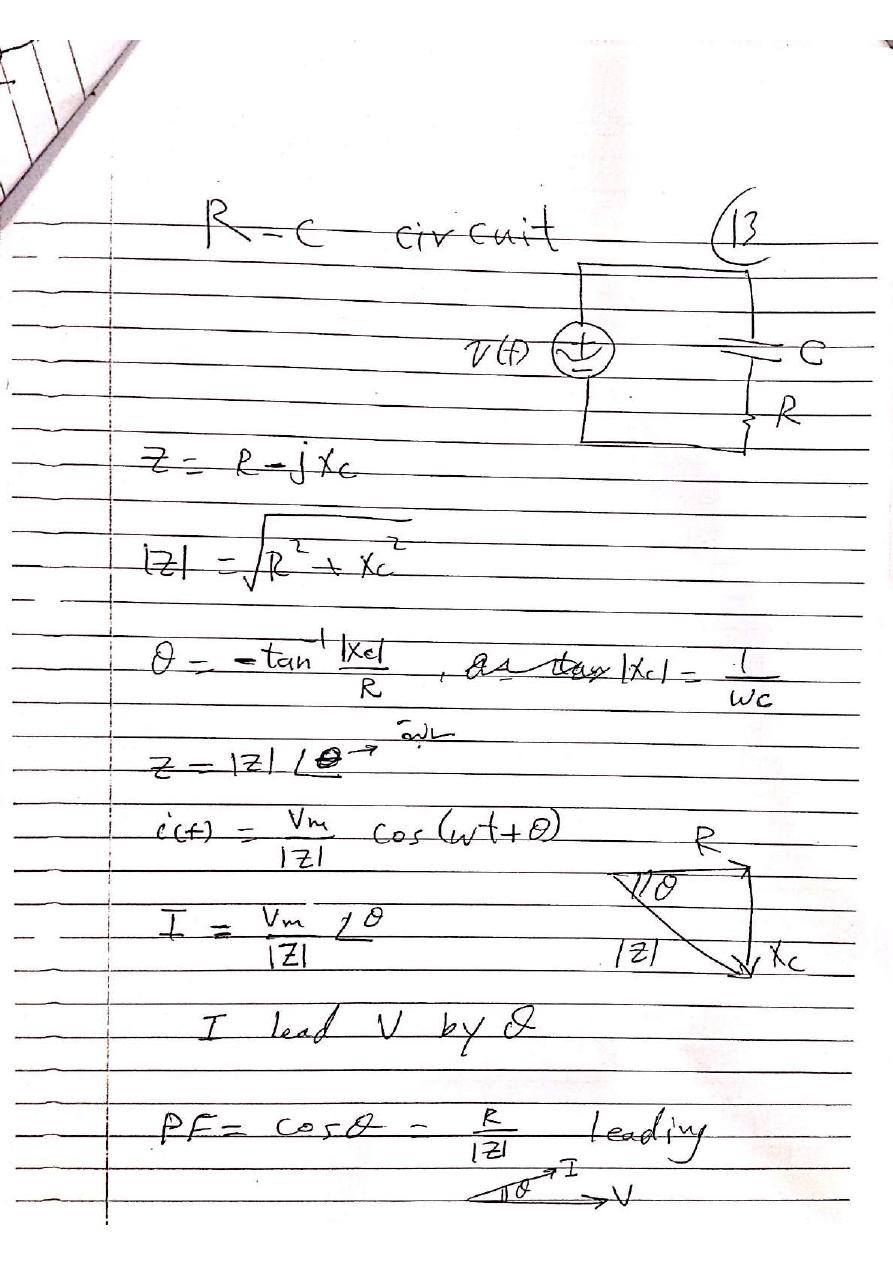 R-C circuit (13)
v(t) + - C
R
Z = R - jXc
|Z| = √(R² + Xc²)
θ = -tan⁻¹ |Xc|/R , as |Xc| = 1/wc
Z = |Z| ∠θ →
i(t) = Vm/|Z| cos(wt+θ)
R
θ
I = Vm/|Z| ∠θ
|Z| Xc
I lead V by θ
PF = cosθ = R/|Z| leading
θ I
V